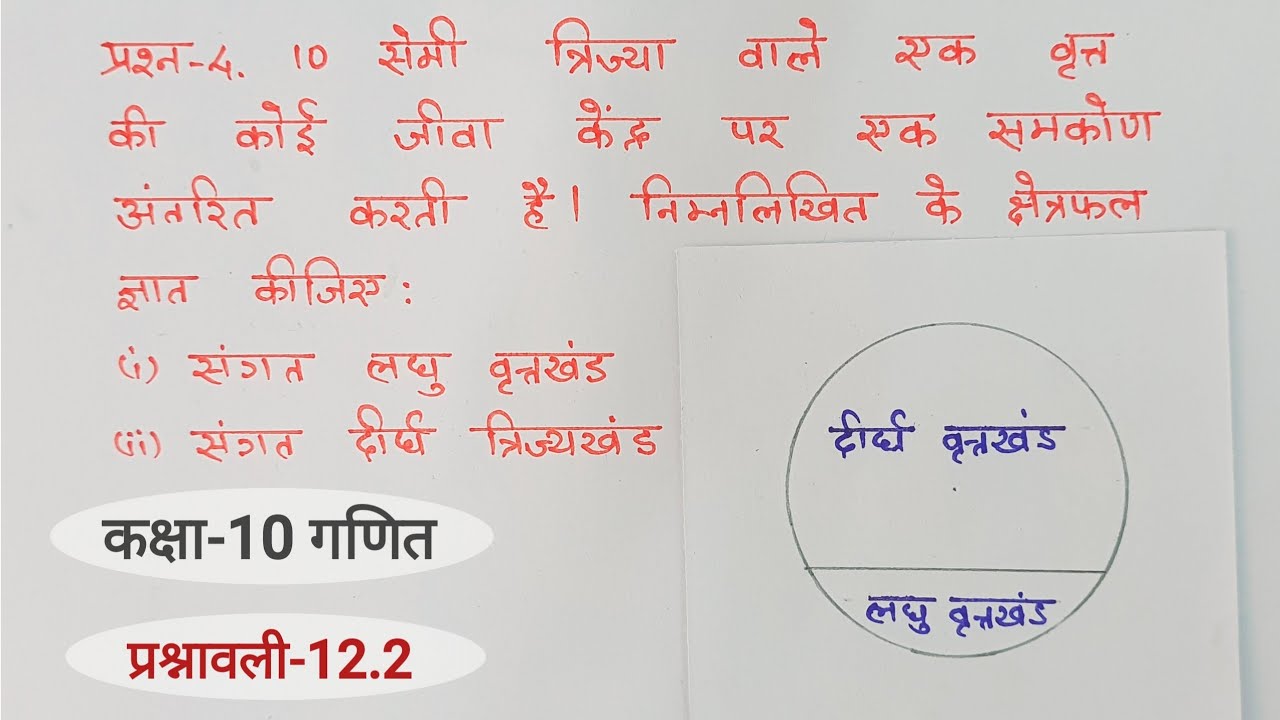 प्रश्न-4. 10 सेमी त्रिज्या वाले एक वृत्त
की कोई जीवा केंद्र पर एक समकोण
अंतरित करती है। निम्नलिखित के क्षेत्रफल
ज्ञात कीजिए :
(i) संगत लघु वृत्तखंड
(ii) संगत दीर्घ त्रिज्यखंड
दीर्घ वृत्तखंड
लघु वृत्तखंड
कक्षा-10 गणित
प्रश्नावली-12.2